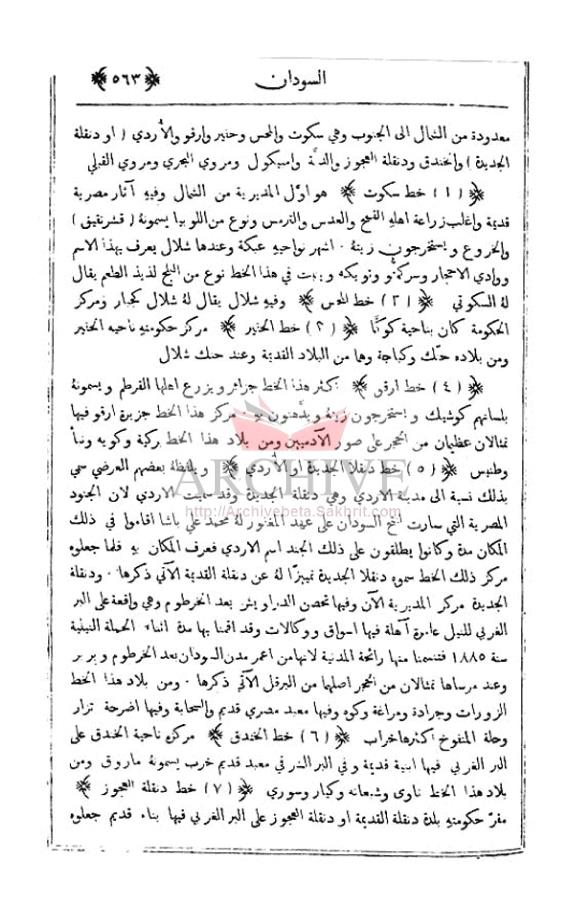 السودان ﴿ ٥٦٣ ﴾
معدودة من الشمال الى الجنوب وهي سكوت والمحس وحنير وارقو والأردي ( او دنقلة
الجديدة ) والخندق ودنقلة العجوز والدبة وامبيكول ومروي البحري ومروي القبلي
﴿ (١) خط سكوت ﴾ هو اول المديرية من الشمال وفيه آثار مصرية
قديمة واغلب زراعة اهله القمح والعدس والترمس ونوع من اللوبيا يسمونة ( قشرنقيق )
والخروع ويستخرجون زيتة ٠ اشهر نواحيه عبكة وعندها شلال يعرف بهذا الاسم
ووادي الاحجار وسركمتو ونويكه وينبت في هذا الخط نوع من البلح لذيذ الطعم يقال
لة السكوتي ﴿ (٢) خط المحس ﴾ وفيه شلال يقال لة شلال كجبار ومركز
الحكومة كان بناحية كوكا ﴿ (٣) خط الحنير ﴾ مركز حكومته ناحيه الحنير
ومن بلاده حنك وكباجة وها من البلاد القديمة وعند حنك شلال
﴿ (٤) خط ارقو ﴾ اكثر هذا الخط جزائر ويزرع اهلها القرطم ويسمونة
بلسانهم كوشيك ويستخرجون زيتة ويدهنون به ٠ مركز هذا الخط جزيرة ارقو فيها
تمثالان عظيمان من الحجر على صور الآدميين ومن بلاد هذا الخط بركية وكويه
وطنبس ﴿ (٥) خط دنقلا الجديدة او الأردي ﴾ ويلفظة بعضهم العرضي سمي
بذلك نسبة الى مدينة الاردي وهي دنقلة الجديدة وقد سميت الاردي لان الجنود
المصرية التي سارت لفتح السودان على عهد المغفور لة محمد علي باشا اقاموا في ذلك
المكان مدة وكانوا يطلقون على ذلك الجند اسم الاردي فعرف المكان به فلما جعلوه
مركز ذلك الخط سموه دنقلا الجديدة تمييزًا لة عن دنقلة القديمة الآتي ذكرها ٠ ودنقلة
الجديدة مركز المديرية الآن وفيها تحصن الدراويش بعد الخرطوم وهي واقعة على البر
الغربي للنيل عامرة آهلة فيها اسواق ووكالات وقد اقمنا بها مدة اثناء الحملة النيلية
سنة ١٨٨٥ فتنسمنا منها رائحة المدنية لانها من اعمر مدن السودان بعد الخرطوم وبربر
وعند مرساها تمثالان من الحجر اصلهما من البرقل الآتي ذكرها ٠ ومن بلاد هذا الخط
الزورات وجرادة ومراغة وكوه وفيها معبد مصري قديم والسحابة وفيها اضرحة تزار
وحلة المنفوخ اكثرها خراب ﴿ (٦) خط الخندق ﴾ مركزه ناحية الخندق على
البر الغربي فيها ابنية قديمة وفي البر الشرقي معبد قديم خرب يسمونة ماروق ومن
بلاد هذا الخط ناوى وشبعانه وكبار وسوري ﴿ (٧) خط دنقلة العجوز ﴾
مقر حكومته بلدة دنقلة القديمة او دنقلة العجوز على البر الغربي فيها بناء قديم جعلوه
ARCHIVE
http://Archivebeta.Sakhrit.com